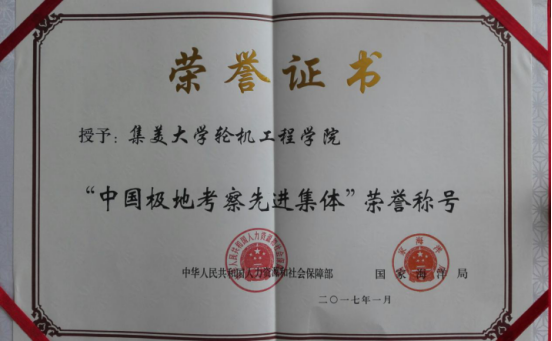 荣誉证书
授予：集美大学轮机工程学院
“中国极地考察先进集体”荣誉称号
中华人民共和国人力资源和社会保障部 国家海洋局
二〇一七年一月